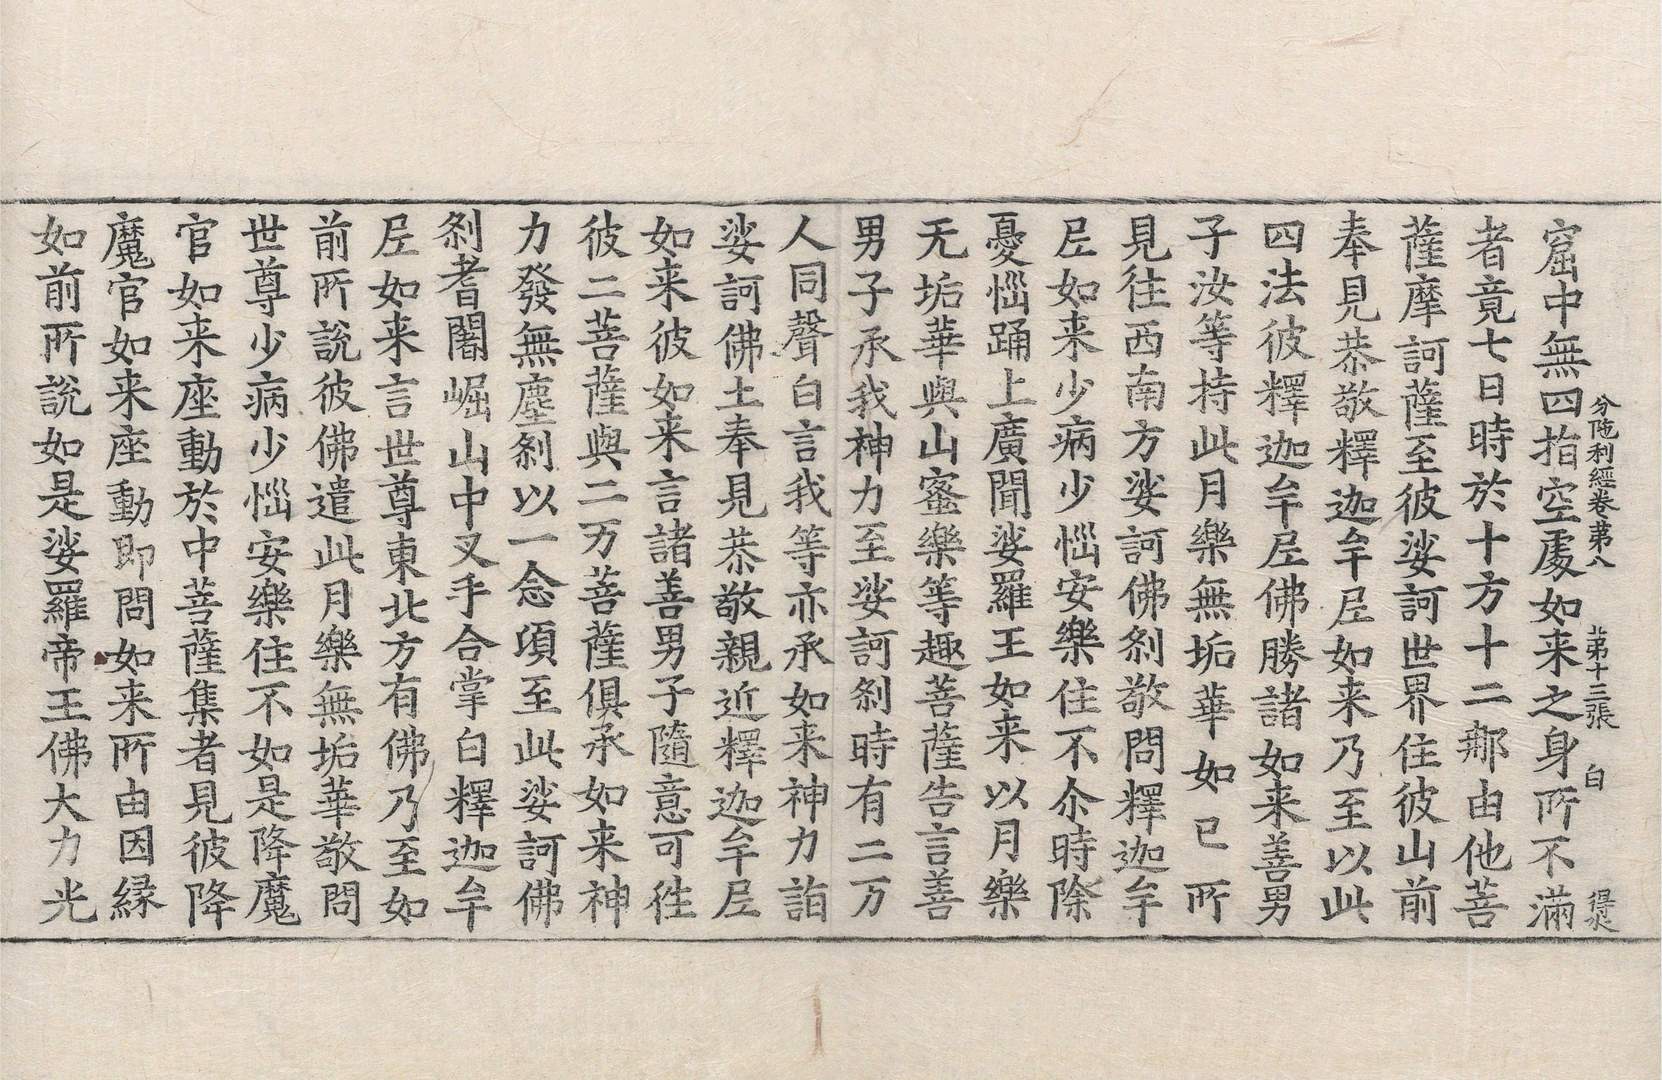 分陁利經卷第八　北第十三張　白　得
窟中無四指空處如来之身所不滿
者竟七日時於十方十二𨙻由他菩
薩摩訶薩至彼娑訶世界住彼山前
奉見恭敬釋迦牟尼如来乃至以此
四法彼釋迦牟尼佛勝諸如来善男
子汝等持此月樂無垢華如已所
見往西南方娑訶佛刹敬問釋迦牟
尼如来少病少惱安樂住不尒時除
憂惱踊上廣聞娑羅王如来以月樂
无垢華與山蜜樂等趣菩薩告言善
男子承我神力至娑訶刹時有二万
人同聲白言我等亦承如来神力詣
娑訶佛土奉見恭敬親近釋迦牟尼
如来彼如来言諸善男子隨意可徃
彼二菩薩與二万菩薩俱承如来神
力發無塵刹以一念頃至此娑訶佛
刹耆闍崛山中叉手合掌白釋迦牟
尼如来言世尊東北方有佛乃至如
前所說彼佛遣此月樂無垢華敬問
世尊少病少惱安樂住不如是降魔
官如来座動於中菩薩集者見彼降
魔官如来座動即問如来所由因縁
如前所說如是娑羅帝王佛大力光